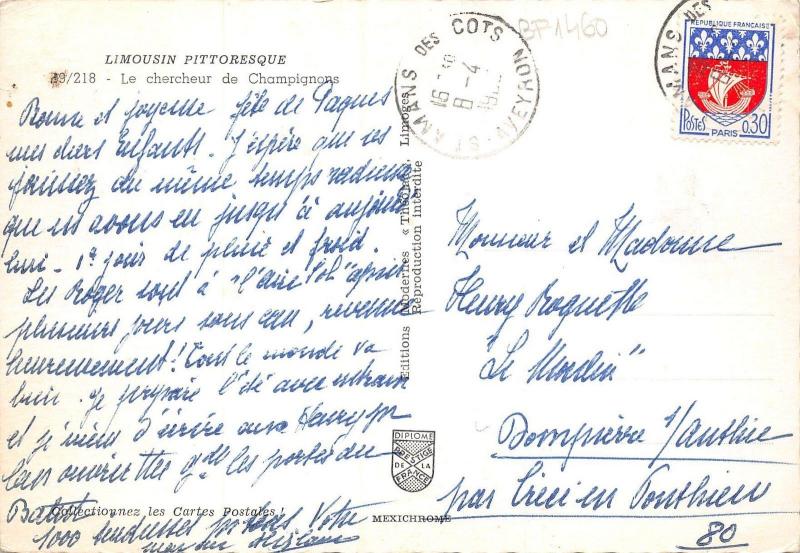 LIMOUSIN PITTORESQUE
49/218 - Le chercheur de Champignons
Bonne et joyeuse fête de Paques
mes chers Enfants. J'espère que
jouissez du même temps radieux
que avons eu jusqu'à aujour
hui - 1er jour de pluie et froid.
Les Roger sont à après
plusieurs jours sans eau, revenue
heureusement! Tout le monde va
bien. Je prépare l'été avec
et je viens d'écrire aux Henry
les portes du
1000 tendresses Votre
Collectionnez les Cartes Postales !
Editions Modernes « Théojac », Limoges
Reproduction interdite
DIPLOME
PRESTIGE
DE LA
FRANCE
MEXICHROME
ST AMANS DES COTS NORD
AVEYRON
16
8 - 4
BF1460
AMANS DES
REPUBLIQUE FRANÇAISE
POSTES 0,30
PARIS
Monsieur et Madame
Henry Roquette
"Le Moulin"
Dompierre s/Authie
par Crécy en Ponthieu
80